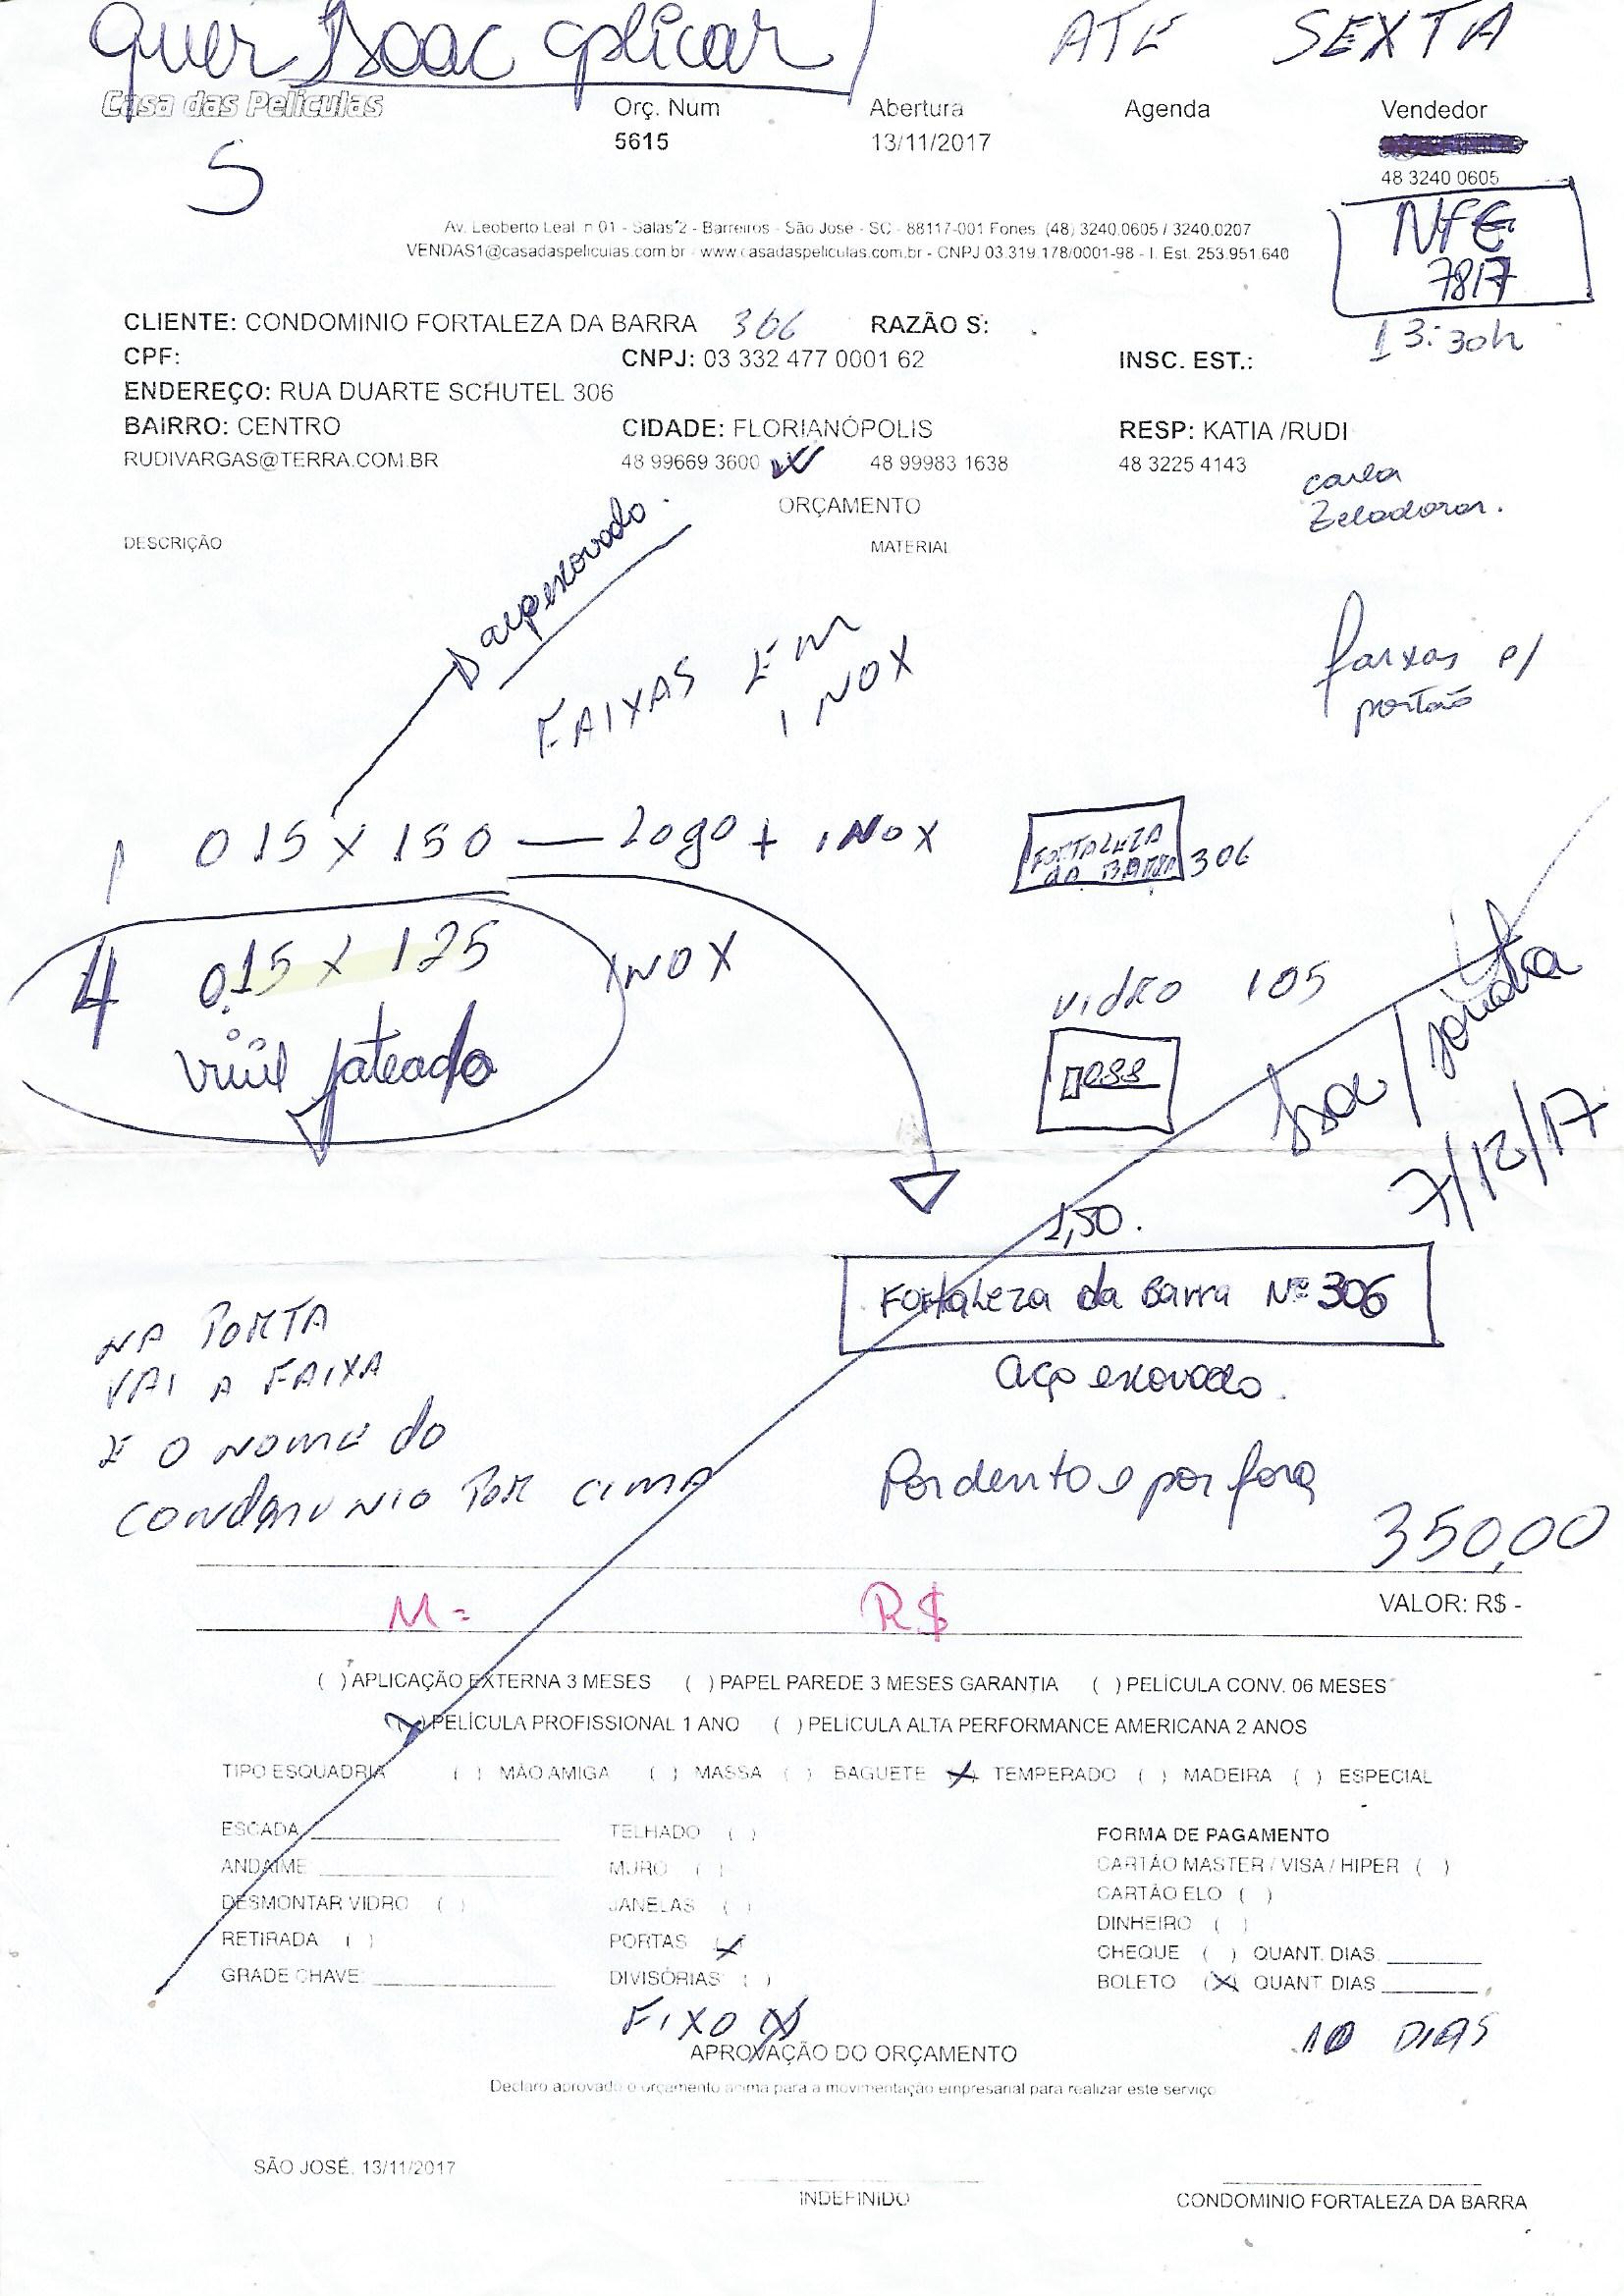 Quer Isaac aplicar
ATE SEXTA
Casa das Películas
Orç. Num
Abertura
Agenda
Vendedor
5615
13/11/2017
48 3240 0605
5
NFE
7817
13:30h
Av. Leoberto Leal n 01 - Salas 2 - Barreiros - São José - SC - 88117-001 Fones (48) 3240.0605 / 3240.0207
VENDAS1@casadaspeliculas.com.br - www.casadaspeliculas.com.br - CNPJ 03.319.178/0001-98 - I. Est. 253.951.640
CLIENTE: CONDOMINIO FORTALEZA DA BARRA 306 RAZÃO S: .
CPF: CNPJ: 03 332 477 0001 62 INSC. EST.:
ENDEREÇO: RUA DUARTE SCHUTEL 306
BAIRRO: CENTRO CIDADE: FLORIANÓPOLIS RESP: KATIA /RUDI
RUDIVARGAS@TERRA.COM.BR 48 99669 3600 48 99983 1638 48 3225 4143
carla
Zeladora.
ORÇAMENTO
DESCRIÇÃO MATERIAL
aço escovado.
FAIXAS EM
INOX
faixas p/
portão
1 015 X 150 — Logo + INOX
FORTALEZA
da BARRA
306
4 0.15 X 125 INOX
vinil jateado
vidro 105
088
7/12/17
1,50.
Fortaleza da Barra Nº 306
aço escovado.
NA PORTA
VAI A FAIXA
E O NOME do
CONDOMINIO POR CIMA
Por dentro e por fora
350,00
M = R$ VALOR: R$ -
( ) APLICAÇÃO EXTERNA 3 MESES ( ) PAPEL PAREDE 3 MESES GARANTIA ( ) PELÍCULA CONV. 06 MESES
(X) PELÍCULA PROFISSIONAL 1 ANO ( ) PELICULA ALTA PERFORMANCE AMERICANA 2 ANOS
TIPO ESQUADRIA ( ) MÃO AMIGA ( ) MASSA ( ) BAGUETE (X) TEMPERADO ( ) MADEIRA ( ) ESPECIAL
ESCADA
TELHADO ( )
FORMA DE PAGAMENTO
ANDAIME
MURO ( )
CARTÃO MASTER / VISA / HIPER ( )
DESMONTAR VIDRO ( )
JANELAS ( )
CARTÃO ELO ( )
DINHEIRO ( )
RETIRADA ( )
PORTAS (X)
CHEQUE ( ) QUANT. DIAS
GRADE CHAVE:
DIVISÓRIAS ( )
BOLETO (X) QUANT DIAS
FIXO (X)
10 DIAS
APROVAÇÃO DO ORÇAMENTO
Declaro aprovado o orçamento acima para a movimentação empresarial para realizar este serviço
SÃO JOSÉ, 13/11/2017
INDEFINIDO
CONDOMINIO FORTALEZA DA BARRA